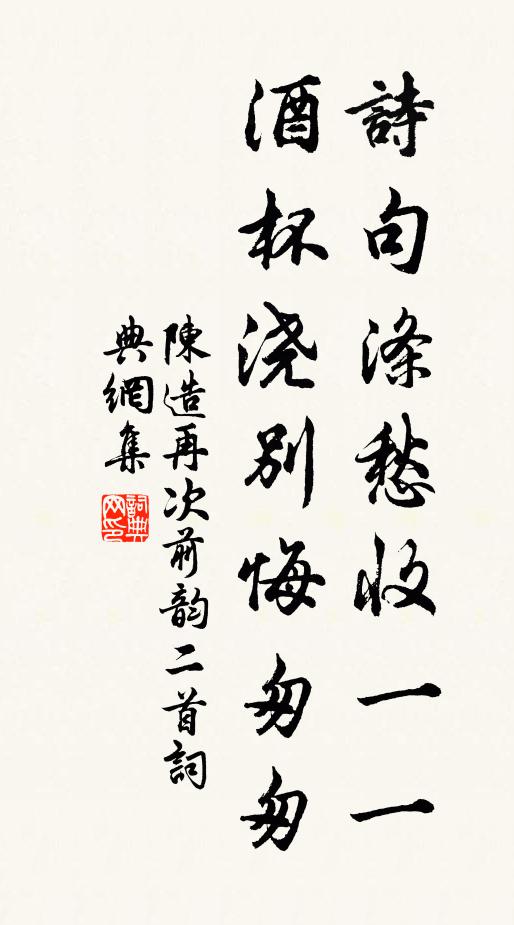 詩句滌愁收一一
酒杯浇別悔匆匆
陳造再次前韵二首詞
典網集
詞典
网印